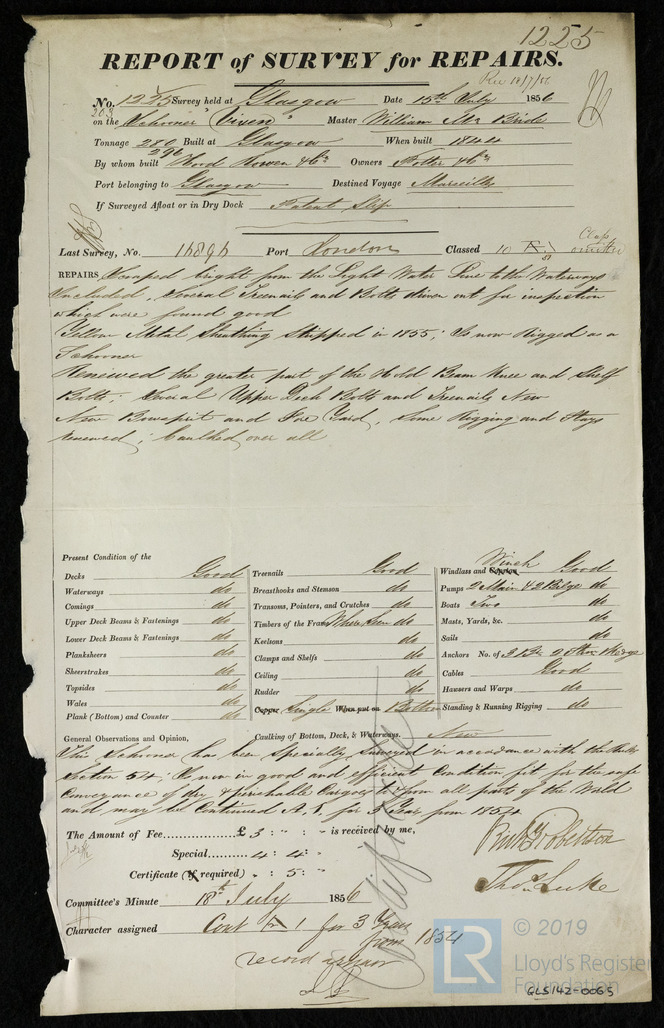 1225
REPORT of SURVEY for REPAIRS.
Rec 16/7/56
No. 1225 Survey held at Glasgow Date 15th July 1856
203
on the Schooner "Vixen" Master William Mc Bride
Tonnage 280 Built at Glasgow When built 1844
296
By whom built Hood Owners Potter & Co
Port belonging to Glasgow Destined Voyage Marseilles
If Surveyed Afloat or in Dry Dock Patent Slip
Last Survey, No. 14894 Port London Classed 10
REPAIRS Scraped bright from the Light Water Line to the Waterways
Included, Several Treenails and Bolts driven out for inspection
which were found good
Yellow Metal Sheathing Stripped in 1855; Is now Rigged as a
Schooner
Renewed the greater part of the Hold Beam Knee and Shelf
Bolts; Several Upper Deck Bolts and Treenails New
New Bowsprit and Fore Yard, Some Rigging and Stays
renewed; Caulked over all
Present Condition of the
Decks Good
Waterways do
Comings do
Upper Deck Beams & Fastenings do
Lower Deck Beams & Fastenings do
Planksheers do
Sheerstrakes do
Topsides do
Wales do
Plank (Bottom) and Counter do
Treenails Good
Breasthooks and Stemson do
Transoms, Pointers, and Crutches do
Timbers of the Frame Where Seen do
Keelsons do
Clamps and Shelfs do
Ceiling do
Rudder do
Copper Single When put on Bottom
Caulking of Bottom, Deck, & Waterways. New
Windlass and Capstan Winch Good
Pumps 2 Main & 2 Bilge do
Boats Two do
Masts, Yards, &c. do
Sails do
Anchors No. of 3 Br 2 Strm 1 Kedge
Cables Good
Hawsers and Warps do
Standing & Running Rigging do
General Observations and Opinion,
This Schooner has been Specially Surveyed in accordance with the Rules
Section 54, Is now in good and efficient Condition fit for the safe
Conveyance of dry & perishable Cargoes to & from all parts of the World
and may be Continued A.1. for 3 Years from 1854
The Amount of Fee £ 3 : " : " is received by me,
Special 4 : 4 : "
Certificate (If required) " : 5 : "
Robertson
Thos Luke
Certificate
Committee's Minute 18th July 1856
Character assigned Cont A 1 for 3 Years
from 1854
© 2019
LR
Lloyd's Register
Foundation
GLS142-0065